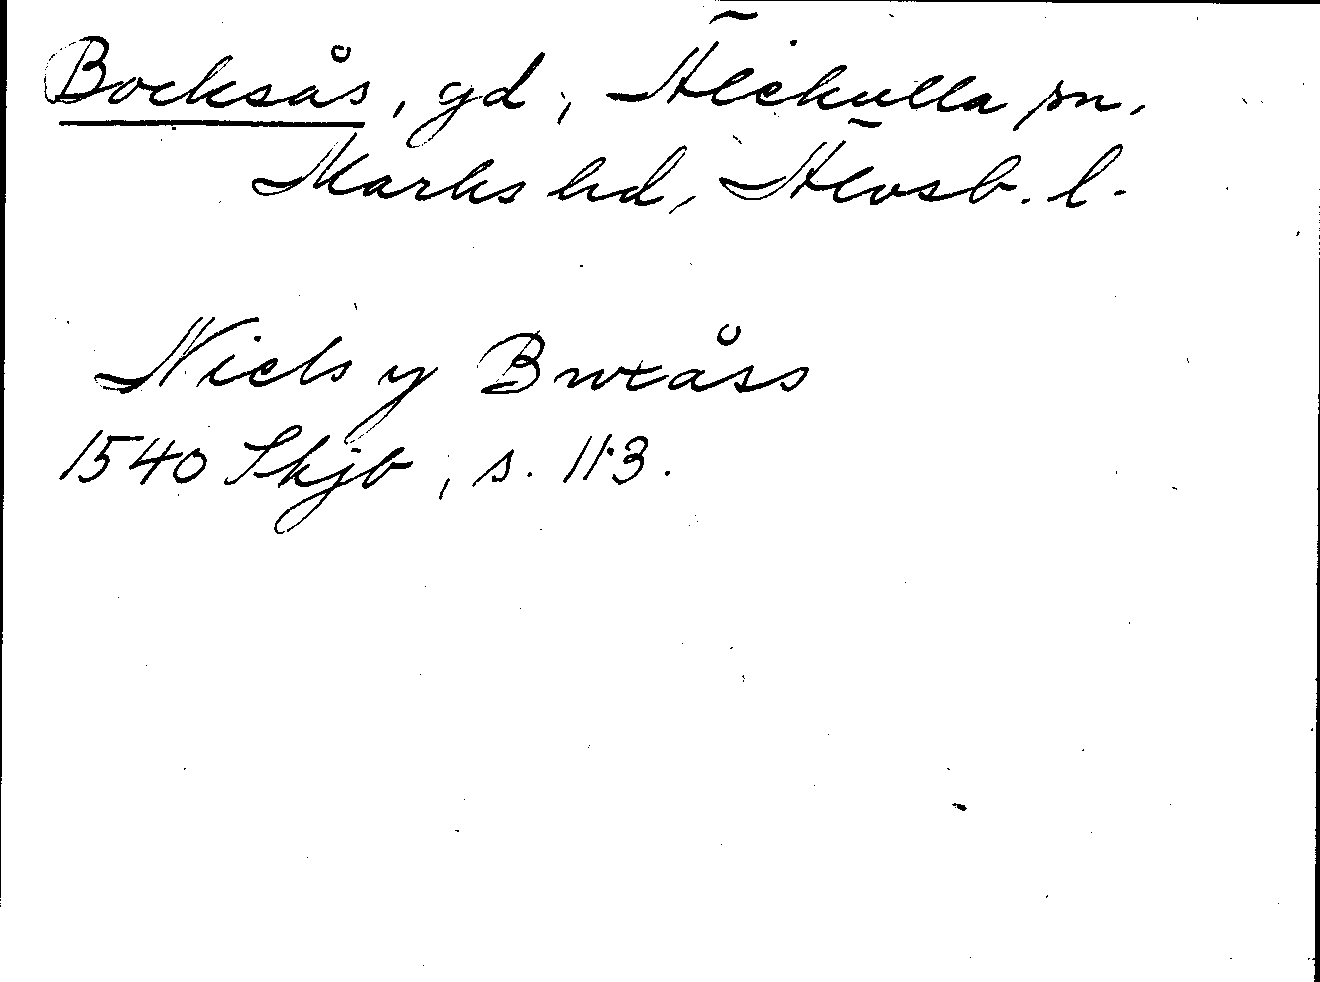 Bocksås, gd, Älekulla sn,
Marks hd, Älvsb. l.
Niels y Bwxåss
1540 Skjb, s. 113.